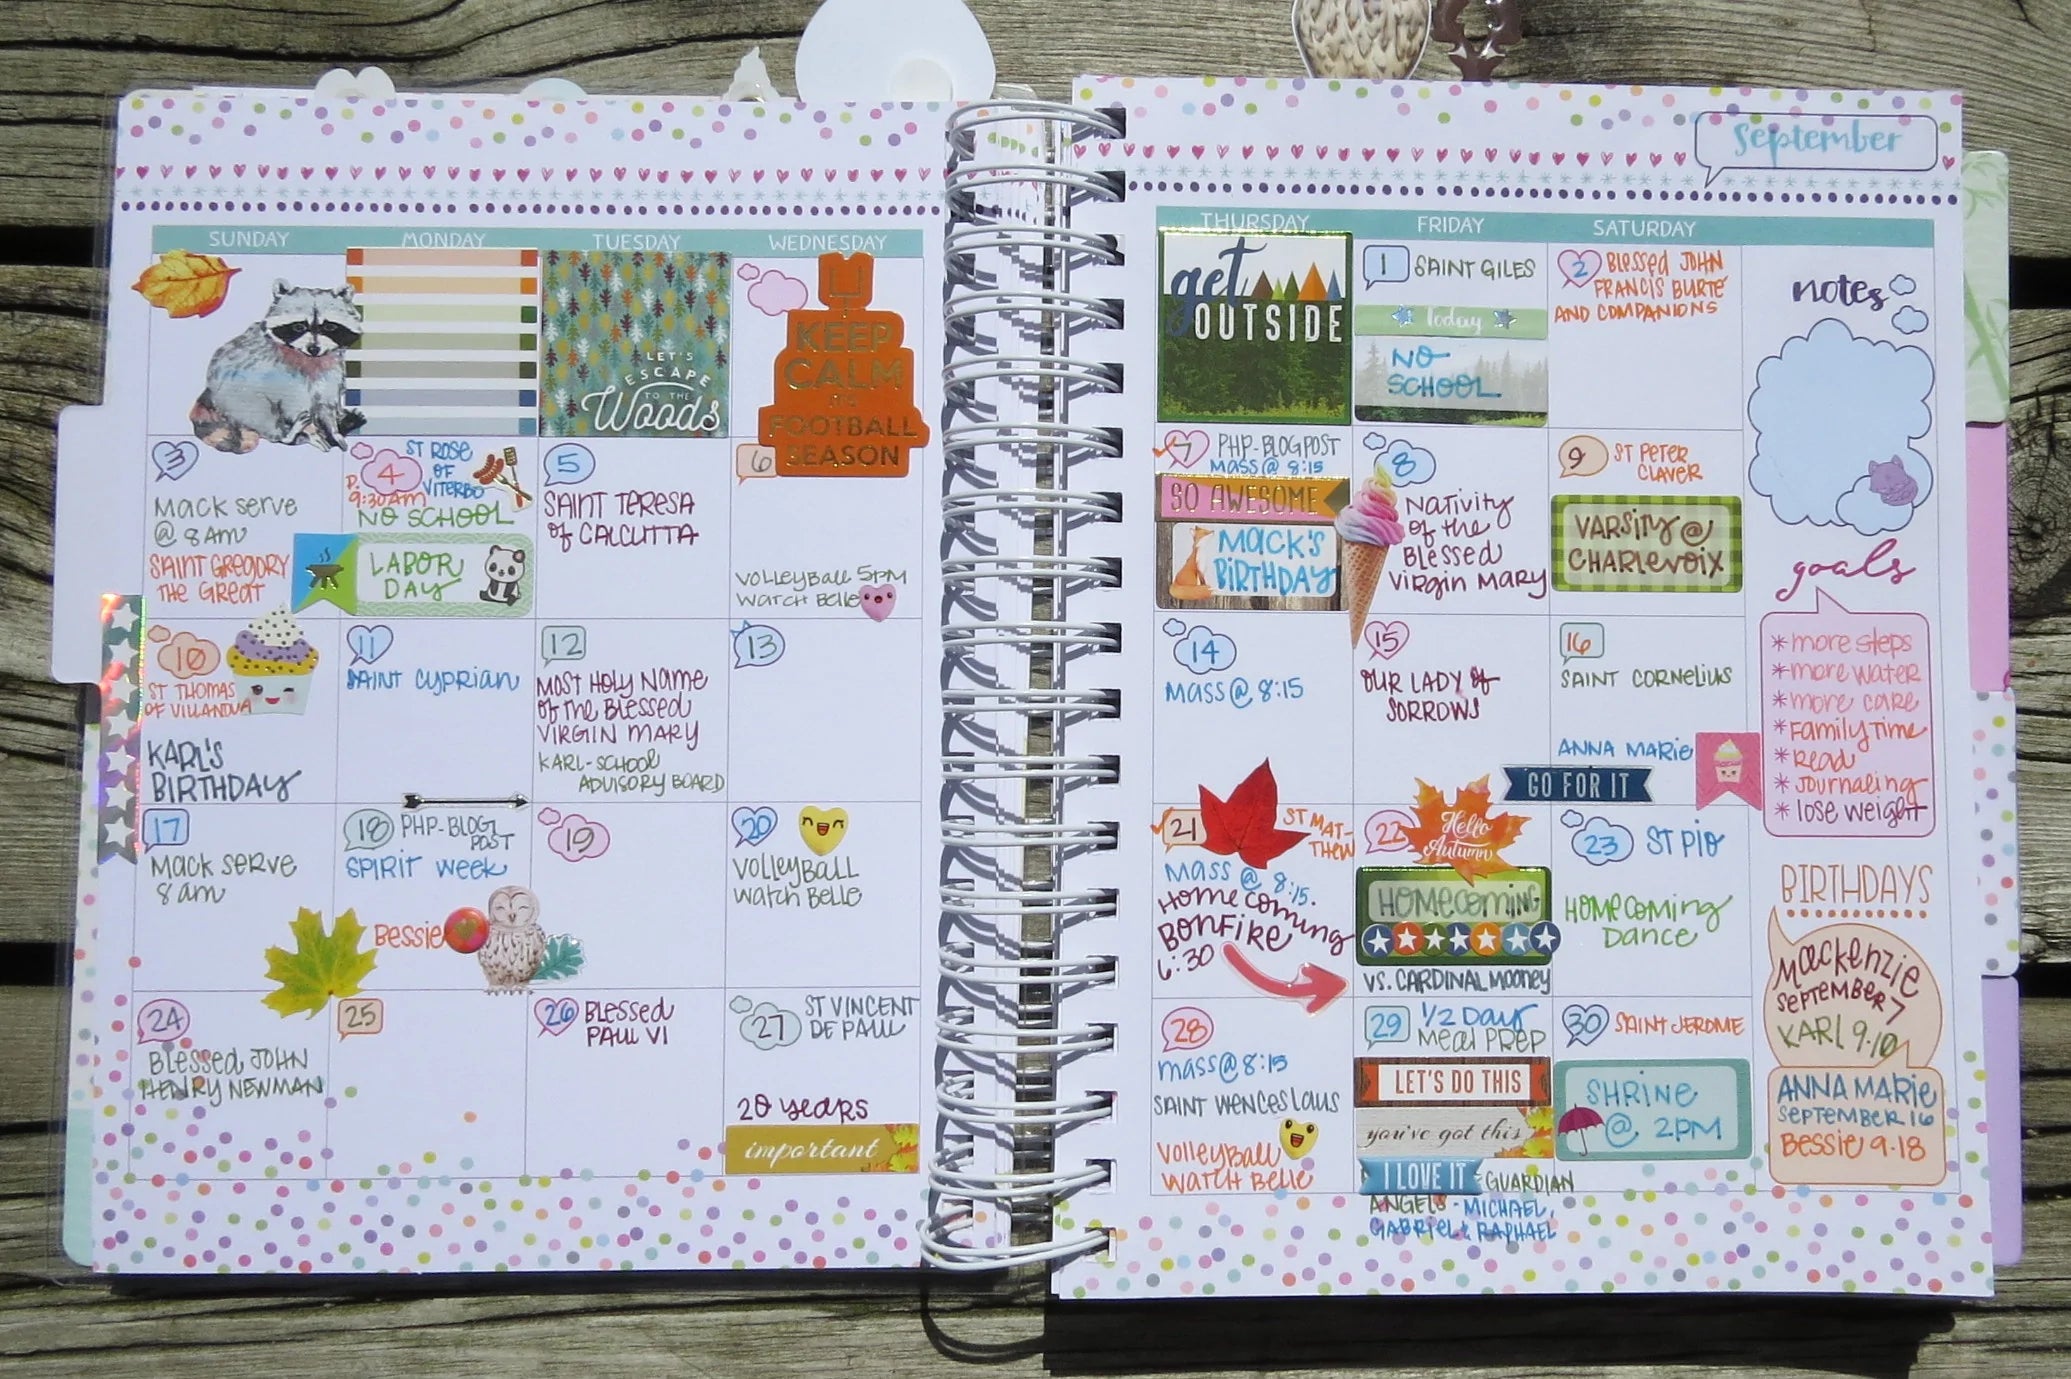 September
SUNDAY
MONDAY
TUESDAY
WEDNESDAY
THURSDAY
FRIDAY
SATURDAY
LET'S
ESCAPE
TO THE
Woods
KEEP
CALM
FOOTBALL
SEASON
get
OUTSIDE
1 SAINT GILES
Today
NO
SCHOOL
2 BLESSED JOHN
FRANCIS BURTÉ
AND COMPANIONS
notes
3
MACK SERVE
@ 8AM
SAINT GREGORY
THE GREAT
4 ST ROSE
OF
VITERBO
9:30AM
NO SCHOOL
LABOR
DAY
5
SAINT TERESA
of CALCUTTA
6
VOLLEYBALL 5PM
WATCH BELLE
7 PHP-BLOGPOST
MASS @ 8:15
SO AWESOME
MACK'S
BIRTHDAY
8
NATIVITY
OF THE
BLESSED
VIRGIN MARY
9 ST PETER
CLAVER
VARSITY @
CHARLEVOIX
goals
*more steps
*more water
*more care
*Family Time
*Read
*Journaling
*lose weight
10
ST THOMAS
OF VILLANOVA
KARL'S
BIRTHDAY
11
SAINT CYPRIAN
12
MOST HOLY NAME
OF THE BLESSED
VIRGIN MARY
KARL-SCHOOL
ADVISORY BOARD
13
14
MASS @ 8:15
15
OUR LADY of
SORROWS
16
SAINT CORNELIUS
ANNA MARIE
GO FOR IT
17
MACK SERVE
8 am
18 PHP-BLOG
POST
SPIRIT WEEK
BESSIE
19
20
VOLLEYBALL
WATCH BELLE
21 ST MAT-
THEW
MASS @ 8:15.
HOMECOMING
BONFIRE
6:30
22
Hello
Autumn
HOMECOMING
VS. CARDINAL MOONEY
23 ST PIO
HOMECOMING
DANCE
BIRTHDAYS
MACKENZIE
SEPTEMBER 7
KARL 9.10
ANNA MARIE
SEPTEMBER 16
BESSIE 9.18
24
BLESSED JOHN
HENRY NEWMAN
25
26 BLESSED
PAUL VI
27 ST VINCENT
DE PAUL
20 YEARS
important
28
MASS @ 8:15
SAINT WENCESLAUS
VOLLEYBALL
WATCH BELLE
29 1/2 DAY
MEAL PREP
LET'S DO THIS
you've got this
I LOVE IT GUARDIAN
ANGELS - MICHAEL,
GABRIEL & RAPHAEL
30 SAINT JEROME
SHRINE
@ 2PM